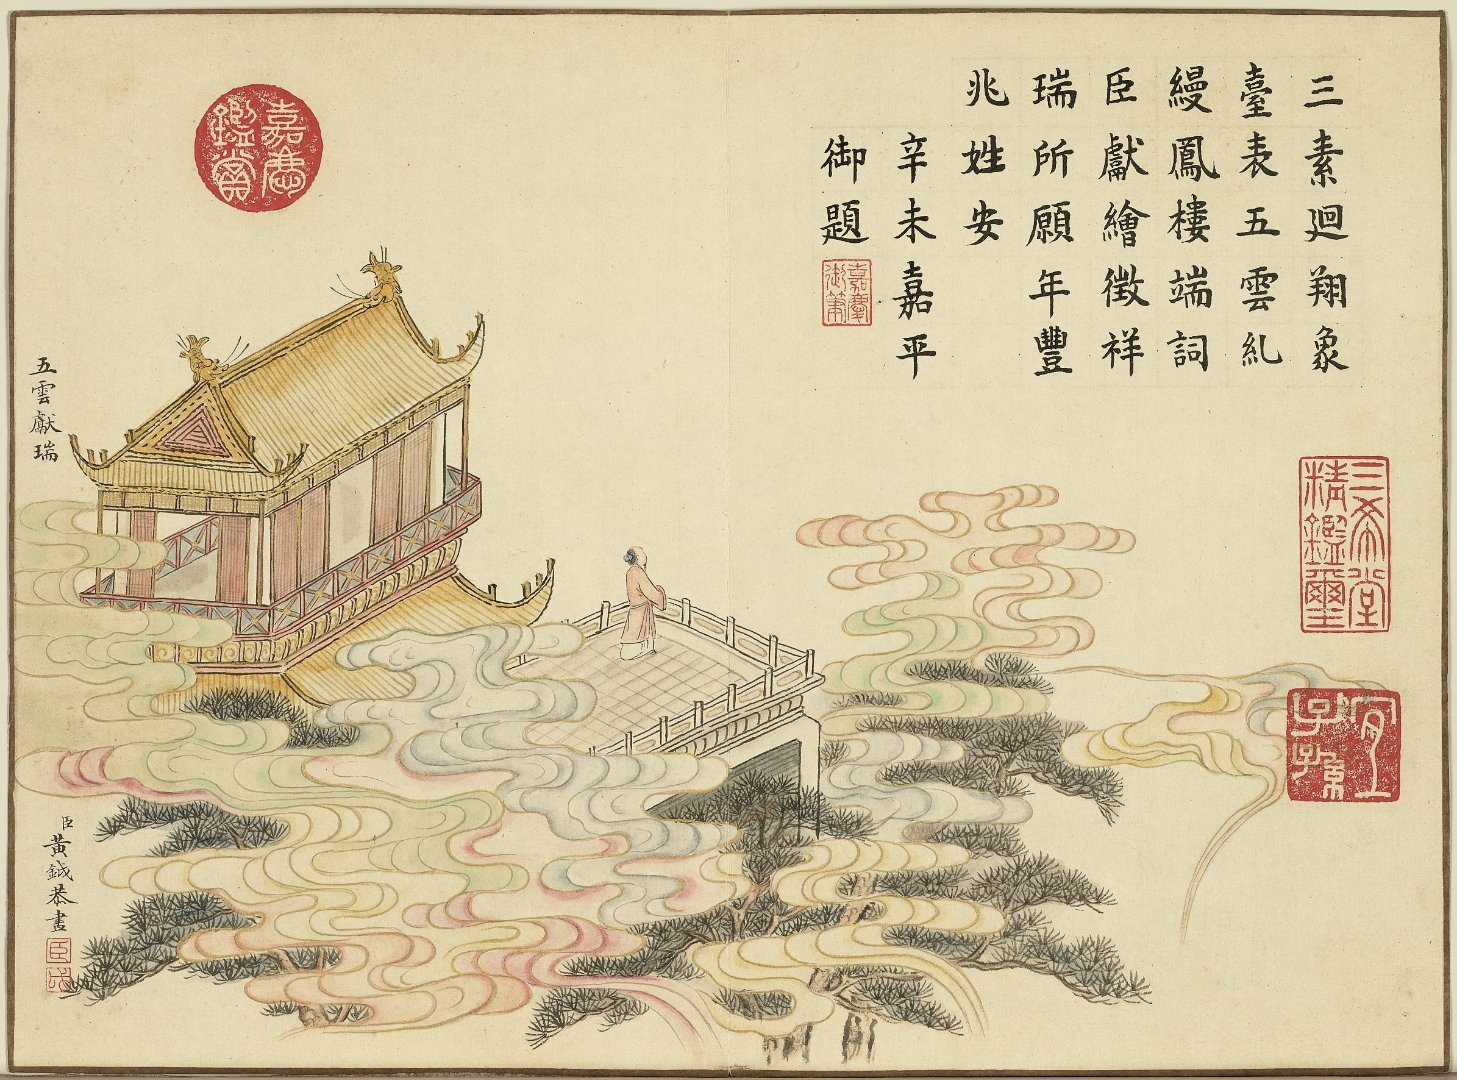 三素迴翔象
臺表五雲糺
縵鳳樓端詞
臣獻繪徵祥
瑞所願年豐
兆姓安
辛未嘉平
御題
嘉慶
御筆
三希堂
精鑑璽
宜
子孫
嘉慶
鑑賞
五雲獻瑞
臣黃鉞恭畫
臣